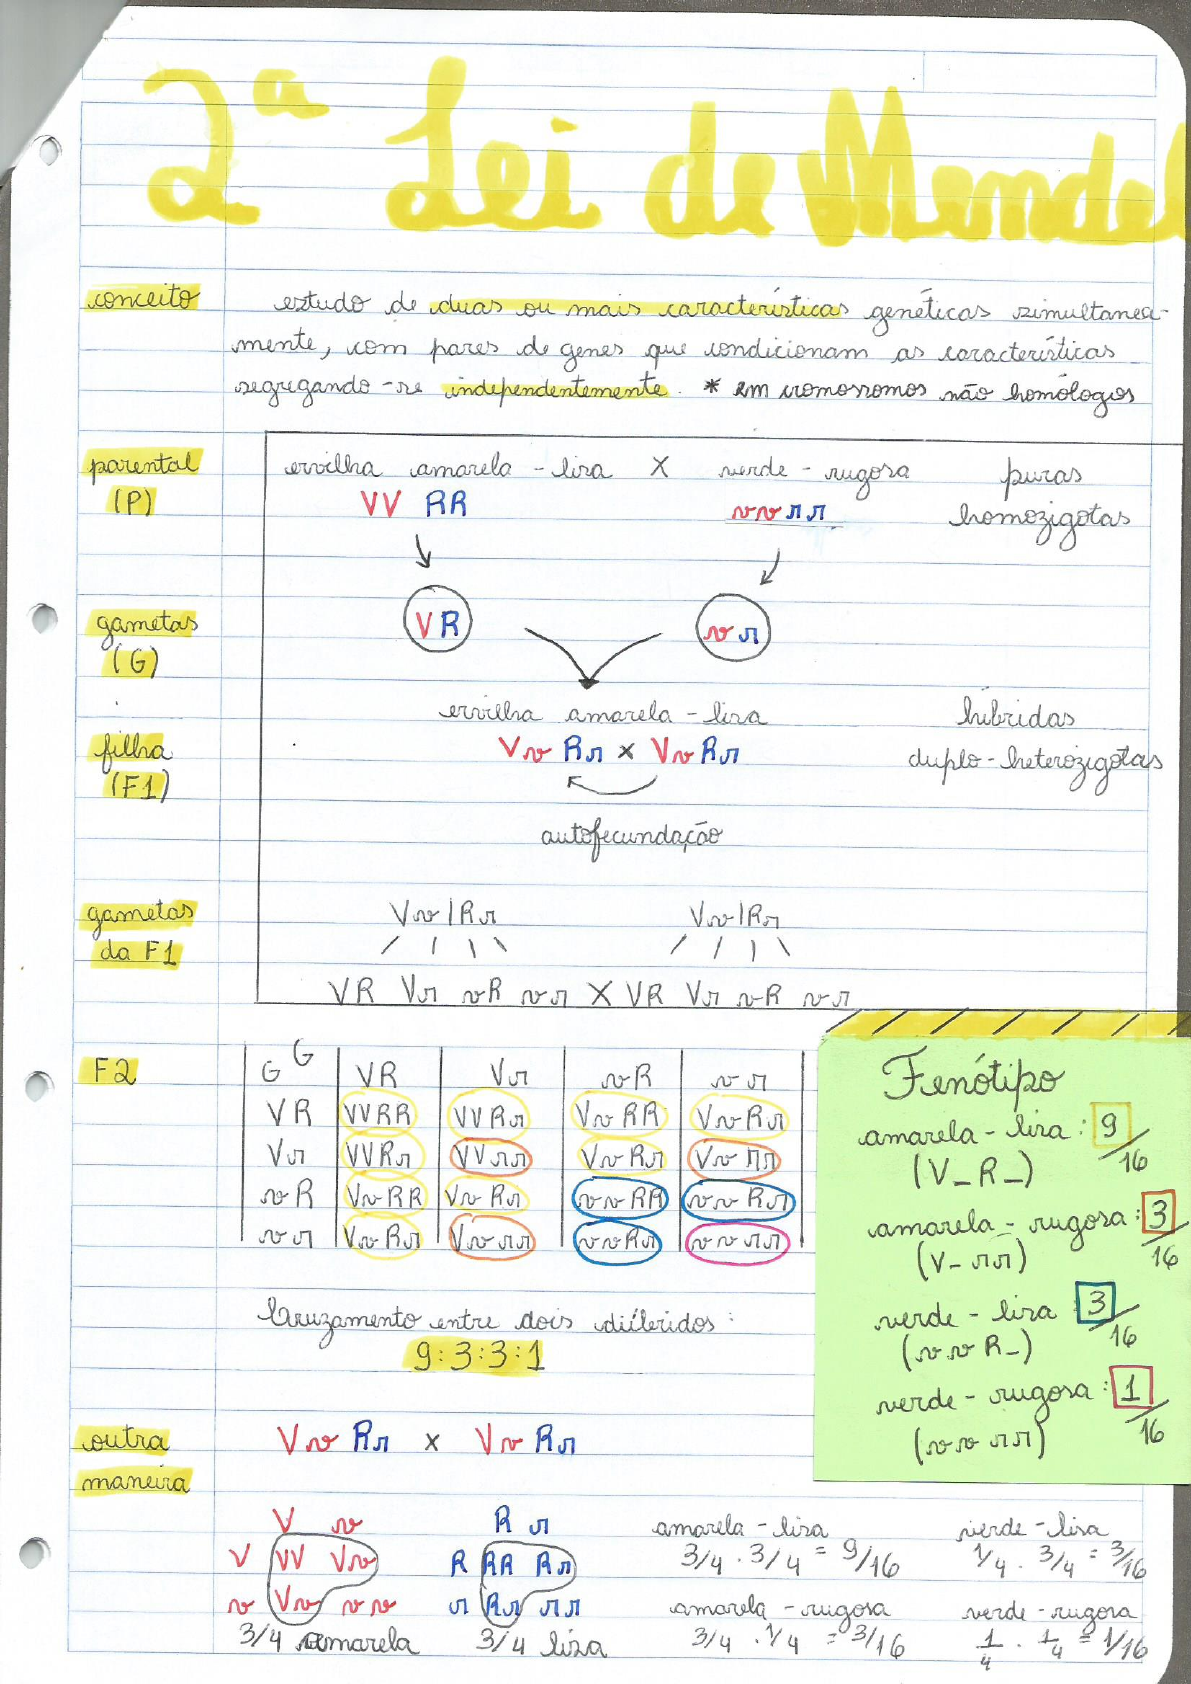 2ª Lei de Mendel
conceito
estudo de duas ou mais características genéticas simultanea-
mente, com pares de genes que condicionam as características
segregando-se independentemente. * em cromossomos não homólogos
parental
(P)
ervilha amarela - lisa X verde - rugosa puras
VV RR vv rr homozigotas
gametas
(G)
VR vr
filha
(F1)
ervilha amarela - lisa híbridas
Vv Rr x Vv Rr duplo-heterozigotas
autofecundação
gametas
da F1
Vv|Rr Vv|Rr
VR Vr vR vr X VR Vr vR vr
F2
G G VR Vr vR vr
VR VVRR VVRr VvRR VvRr
Vr VVRr VVrr VvRr Vvrr
vR VvRR VvRr vvRR vvRr
vr VvRr Vvrr vvRr vvrr
Fenótipo
amarela - lisa : 9/16
(V_R_)
amarela - rugosa : 3/16
(V_rr)
verde - lisa : 3/16
(vvR_)
verde - rugosa : 1/16
(vvrr)
Cruzamento entre dois diíbridos:
9:3:3:1
outra
maneira
Vv Rr x Vv Rr
V v
V VV Vv
v Vv vv
3/4 amarela
R r
R RR Rr
r Rr rr
3/4 lisa
amarela - lisa
3/4 . 3/4 = 9/16
verde - lisa
1/4 . 3/4 = 3/16
amarela - rugosa
3/4 . 1/4 = 3/16
verde - rugosa
1/4 . 1/4 = 1/16